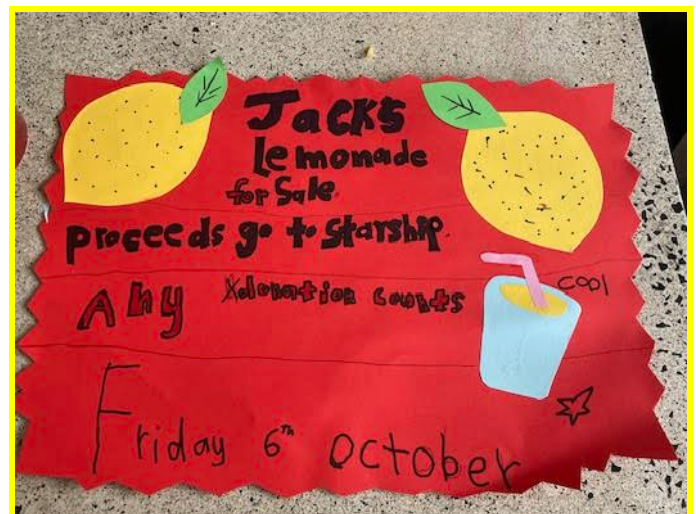 Jacks
lemonade
for Sale.
proceeds go to Starship.
Any donation counts
cool
Friday 6th october